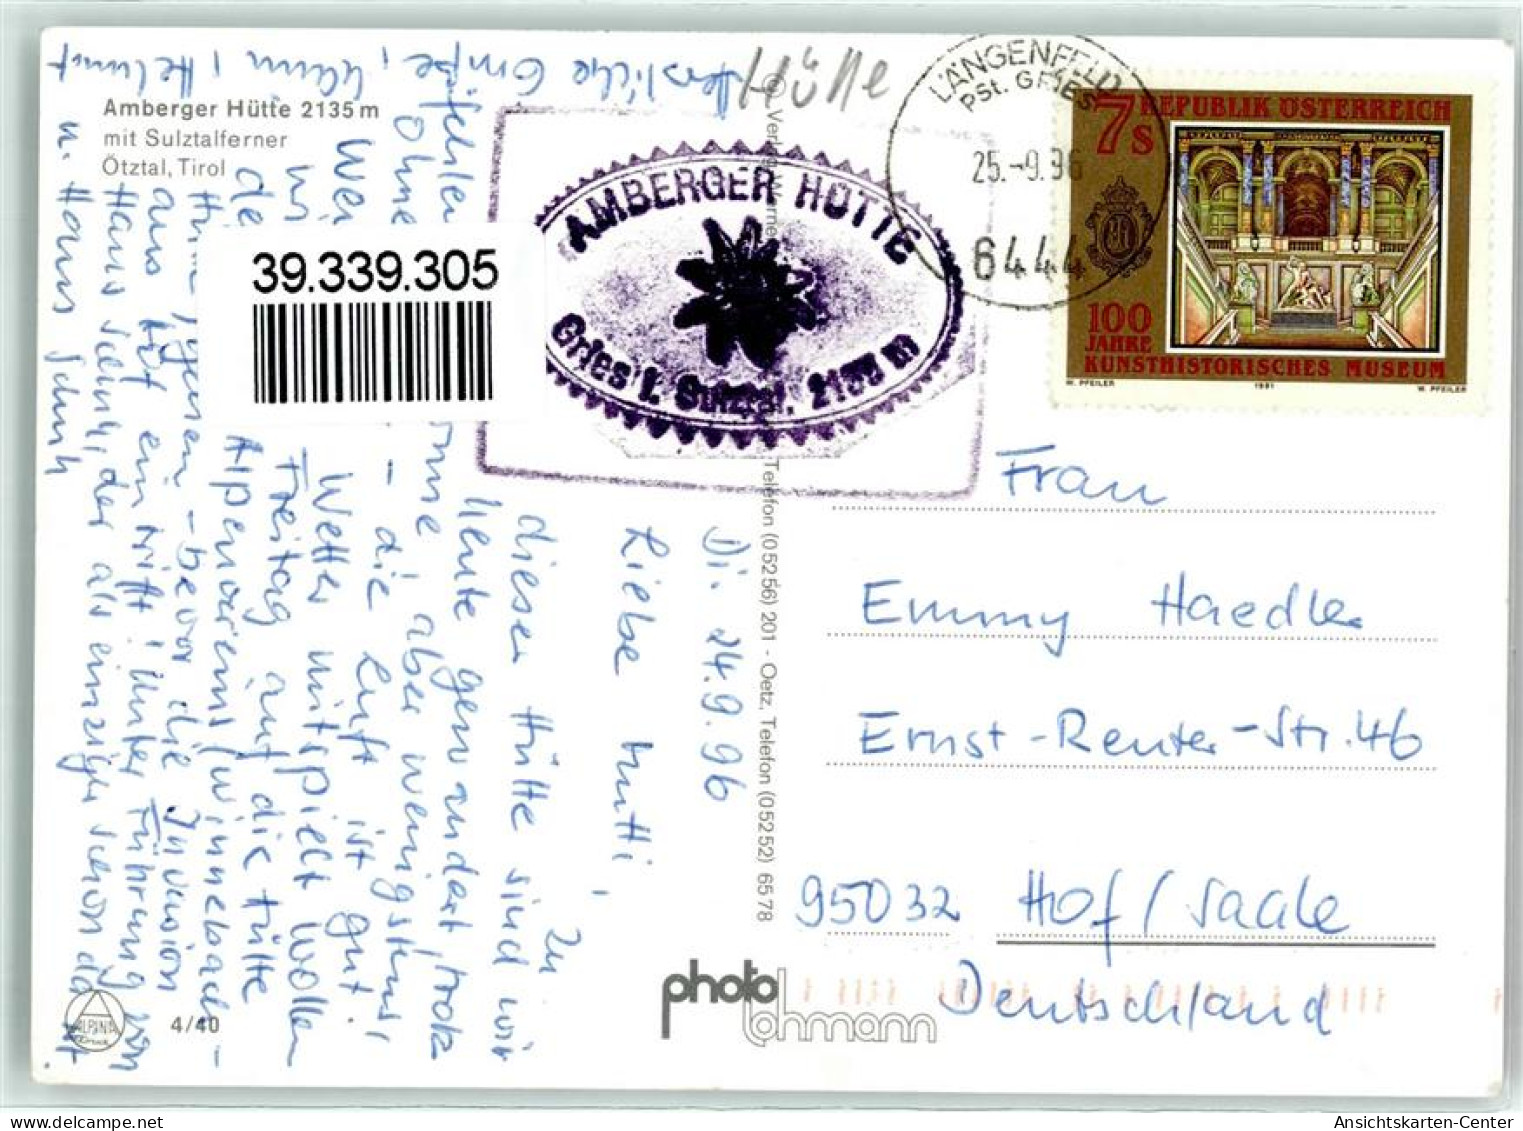 Amberger Hütte 2135 m
mit Sulztalferner
Ötztal, Tirol
39.339.305
Hütte
AMBERGER HÜTTE
Gries i. Sulztal, 2135 m
LÄNGENFELD
PSt. GRIES
25.-9.96
6444
7s REPUBLIK ÖSTERREICH
100
JAHRE
KUNSTHISTORISCHES MUSEUM
W. PFEILER 1991 W. PFEILER
Telefon (05256) 201 - Oetz, Telefon (05252) 6578
Di. 24.9.96
Liebe Mutti,
zu
dieser Hütte sind wir
heute gewandert, trotz
aber wenigstens
- die Luft ist gut.
Wetter mitspielt wollen
Freitag auf die Hütte
Alpenverein (Winnebach-
- bevor die Invasion
aus Hof eintrifft! Unter Führung von
Hans der als einziger schon da ist
u. Hans Schuh
Herzliche Grüße, Helmut
Frau
Emmy Haedler
Ernst-Reuter-Str. 46
95032 Hof/Saale
Deutschland
ALPINA
Druck
4/40
photo
lohmann
Ansichtskarten-Center